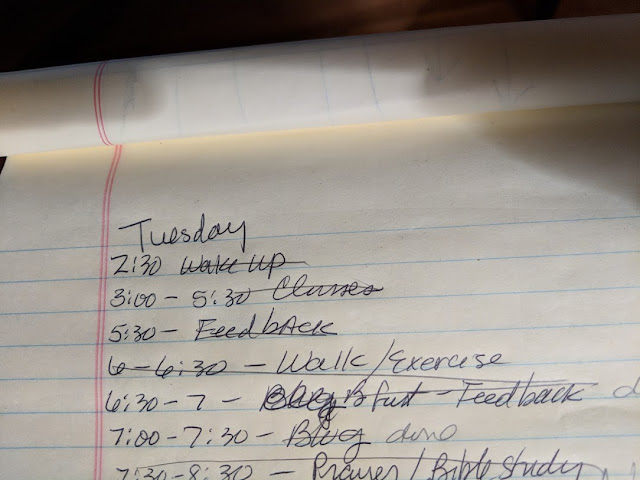 Tuesday
2:30 wake up
3:00 - 5:30 Classes
5:30 - Feedback
6 - 6:30 - Walk/Exercise
6:30 - 7 - Bfast - Feedback
7:00 - 7:30 - Blog done
7:30 - 8:30 - Prayer/Bible Study